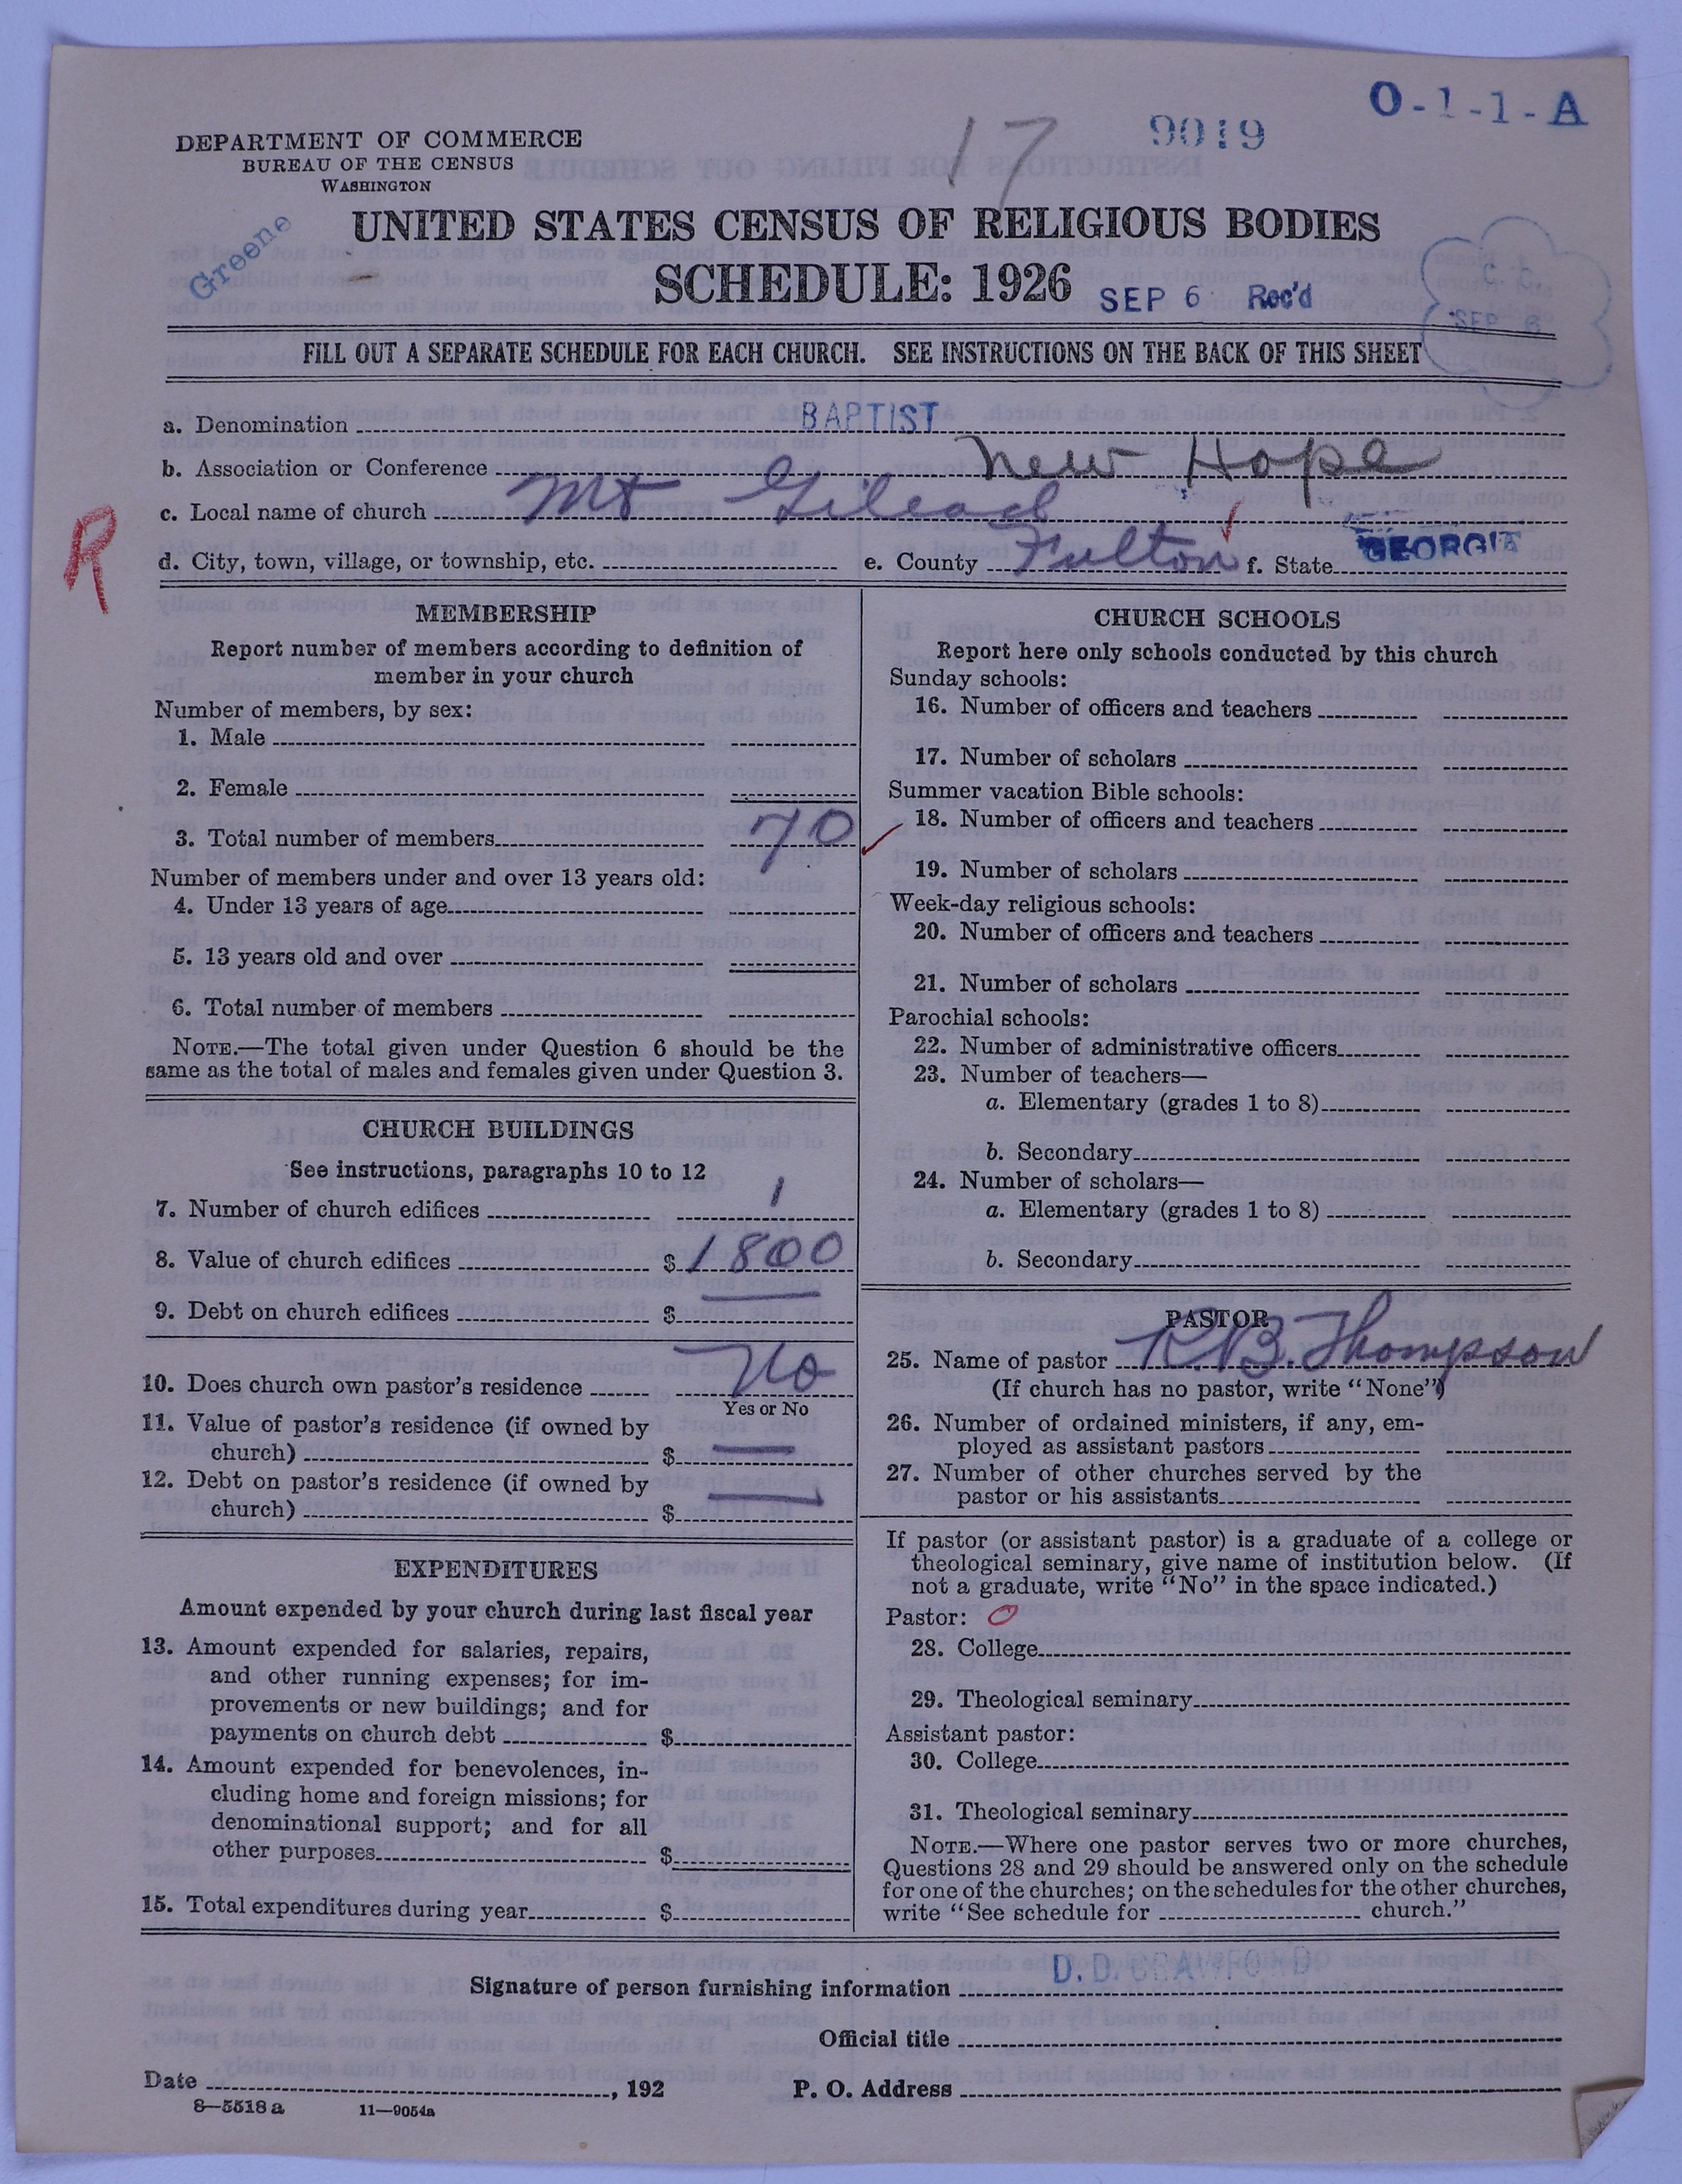 O-1-1-A
17
9019
DEPARTMENT OF COMMERCE
BUREAU OF THE CENSUS
WASHINGTON
Greene
UNITED STATES CENSUS OF RELIGIOUS BODIES
SCHEDULE: 1926
SEP 6 Rec'd
C. C.
SEP 6
FILL OUT A SEPARATE SCHEDULE FOR EACH CHURCH. SEE INSTRUCTIONS ON THE BACK OF THIS SHEET
a. Denomination BAPTIST
b. Association or Conference New Hope
c. Local name of church Mt Gilead
R
d. City, town, village, or township, etc. e. County Fulton f. State GEORGIA
MEMBERSHIP
Report number of members according to definition of
member in your church
Number of members, by sex:
1. Male
2. Female
3. Total number of members 70
Number of members under and over 13 years old:
4. Under 13 years of age
5. 13 years old and over
6. Total number of members
NOTE.—The total given under Question 6 should be the
same as the total of males and females given under Question 3.
CHURCH BUILDINGS
See instructions, paragraphs 10 to 12
7. Number of church edifices 1
8. Value of church edifices $ 1800
9. Debt on church edifices $
10. Does church own pastor's residence No
Yes or No
11. Value of pastor's residence (if owned by
church) $ —
12. Debt on pastor's residence (if owned by
church) $ —
EXPENDITURES
Amount expended by your church during last fiscal year
13. Amount expended for salaries, repairs,
and other running expenses; for im-
provements or new buildings; and for
payments on church debt $
14. Amount expended for benevolences, in-
cluding home and foreign missions; for
denominational support; and for all
other purposes $
15. Total expenditures during year $
CHURCH SCHOOLS
Report here only schools conducted by this church
Sunday schools:
16. Number of officers and teachers
17. Number of scholars
Summer vacation Bible schools:
18. Number of officers and teachers
19. Number of scholars
Week-day religious schools:
20. Number of officers and teachers
21. Number of scholars
Parochial schools:
22. Number of administrative officers
23. Number of teachers—
a. Elementary (grades 1 to 8)
b. Secondary
24. Number of scholars—
a. Elementary (grades 1 to 8)
b. Secondary
PASTOR
25. Name of pastor R. B. Thompson
(If church has no pastor, write "None")
26. Number of ordained ministers, if any, em-
ployed as assistant pastors
27. Number of other churches served by the
pastor or his assistants
If pastor (or assistant pastor) is a graduate of a college or
theological seminary, give name of institution below. (If
not a graduate, write "No" in the space indicated.)
Pastor: O
28. College
29. Theological seminary
Assistant pastor:
30. College
31. Theological seminary
NOTE.—Where one pastor serves two or more churches,
Questions 28 and 29 should be answered only on the schedule
for one of the churches; on the schedules for the other churches,
write "See schedule for church."
Signature of person furnishing information D. D. CRAWFORD
Official title
Date , 192 P. O. Address
8—5518 a 11—9054a